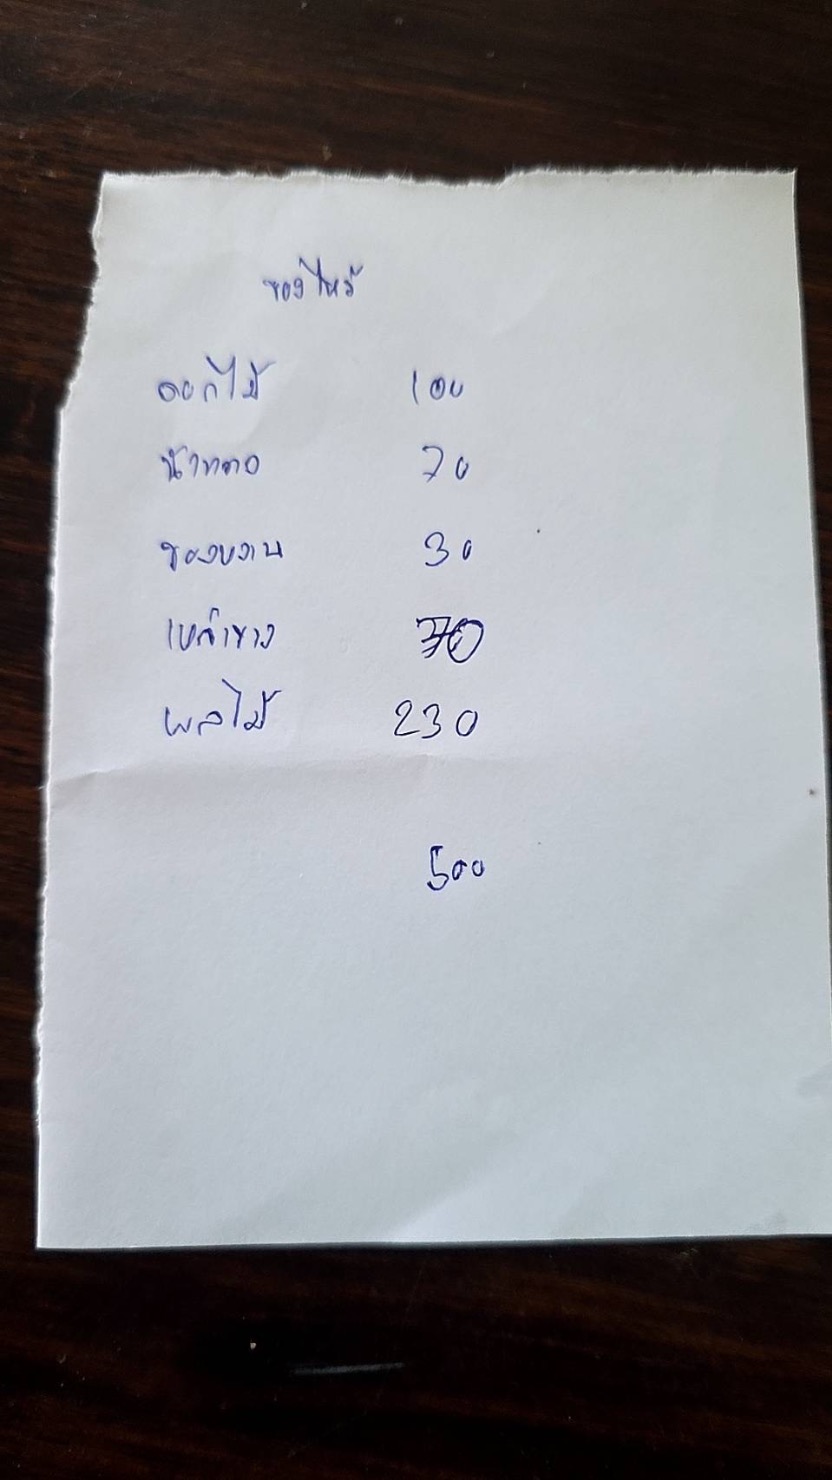 ของไหว้
ดอกไม้ 100
น้ำแดง 70
ของหวาน 30
เหล้าขาว 70
ผลไม้ 230
500